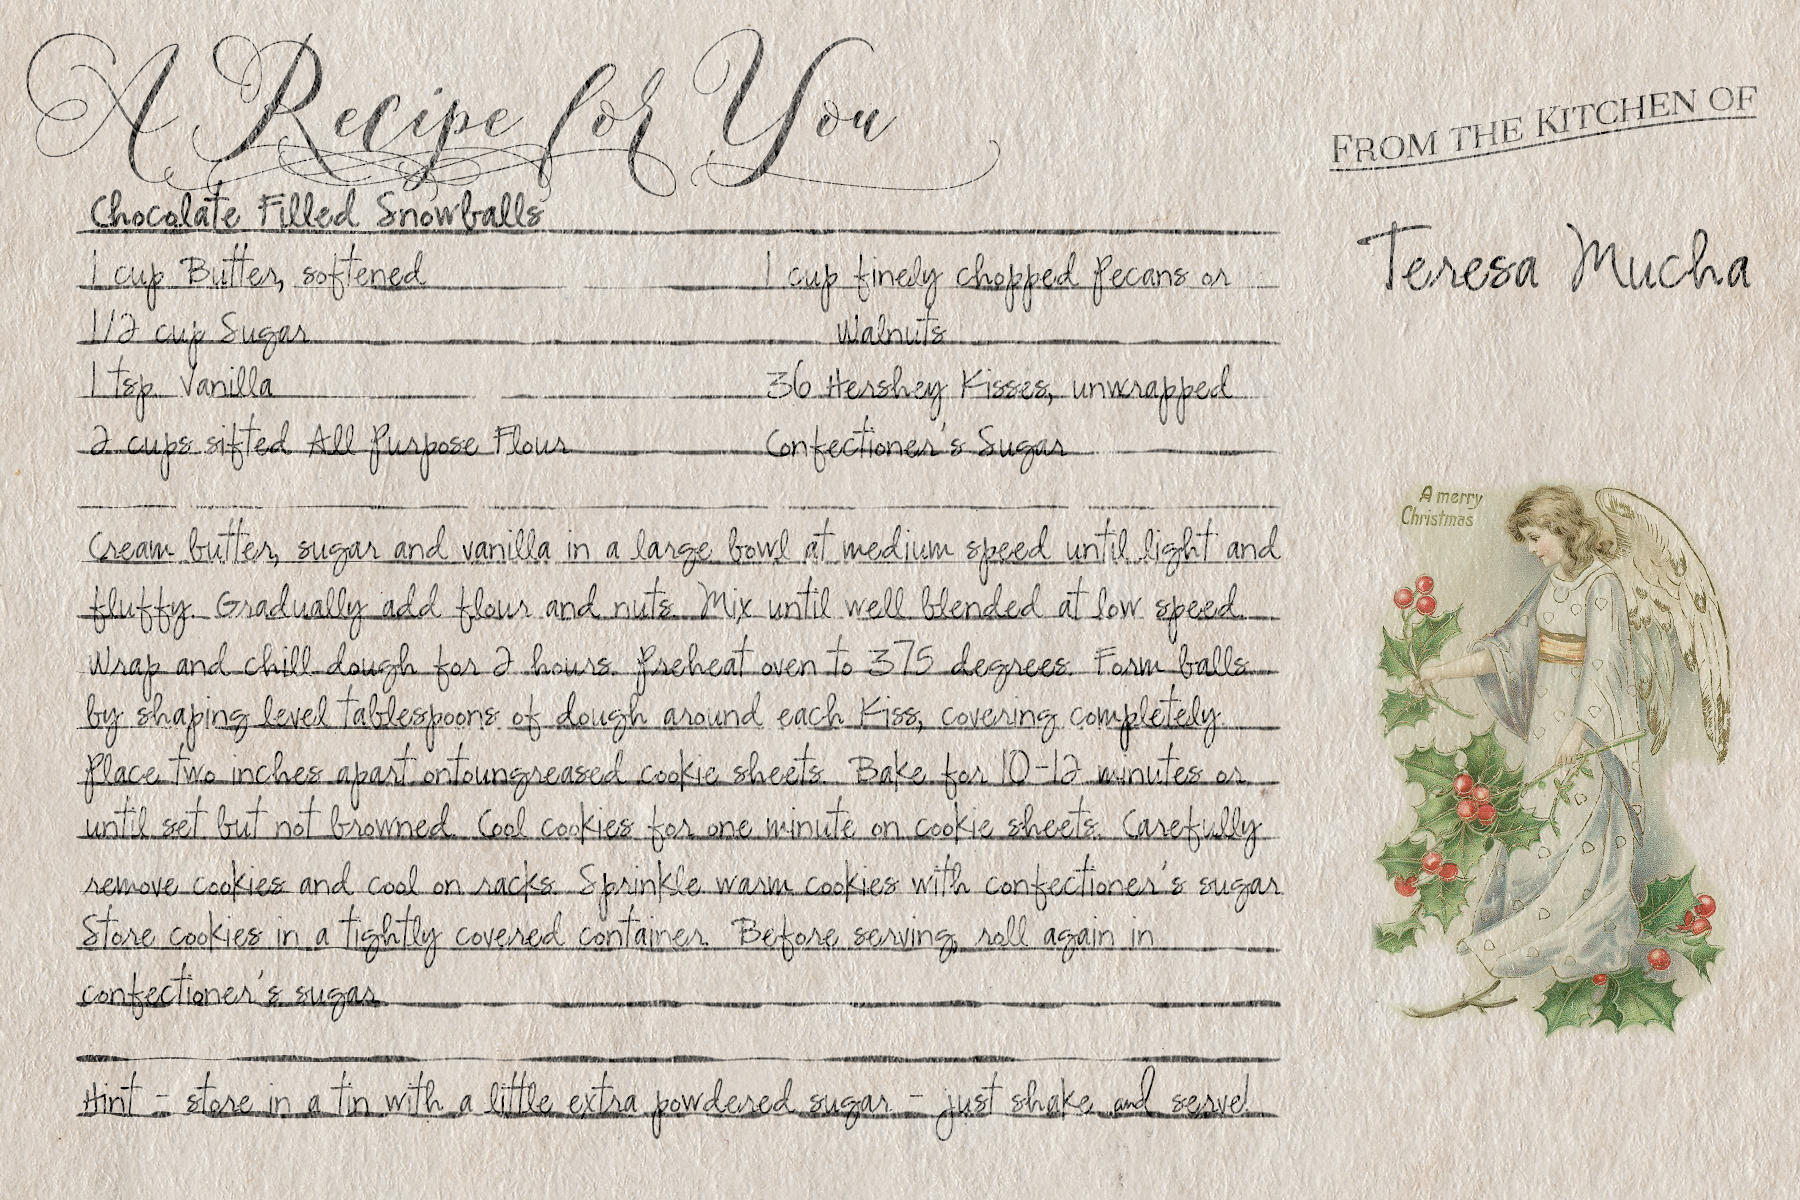 A Recipe for You
FROM THE KITCHEN OF
Teresa Mucha
Chocolate Filled Snowballs
1 cup Butter, softened
1/2 cup Sugar
1 tsp. Vanilla
2 cups sifted All Purpose Flour
1 cup finely chopped Pecans or
Walnuts
36 Hershey Kisses, unwrapped
Confectioner's Sugar
Cream butter, sugar and vanilla in a large bowl at medium speed until light and
fluffy. Gradually add flour and nuts. Mix until well blended at low speed.
Wrap and chill dough for 2 hours. Preheat oven to 375 degrees. Form balls
by shaping level tablespoons of dough around each Kiss, covering completely.
Place two inches apart ontoungreased cookie sheets. Bake for 10-12 minutes or
until set but not browned. Cool cookies for one minute on cookie sheets. Carefully
remove cookies and cool on racks. Sprinkle warm cookies with confectioner's sugar.
Store cookies in a tightly covered container. Before serving, roll again in
confectioner's sugar.
Hint - store in a tin with a little extra powdered sugar - just shake and serve!
A merry
Christmas